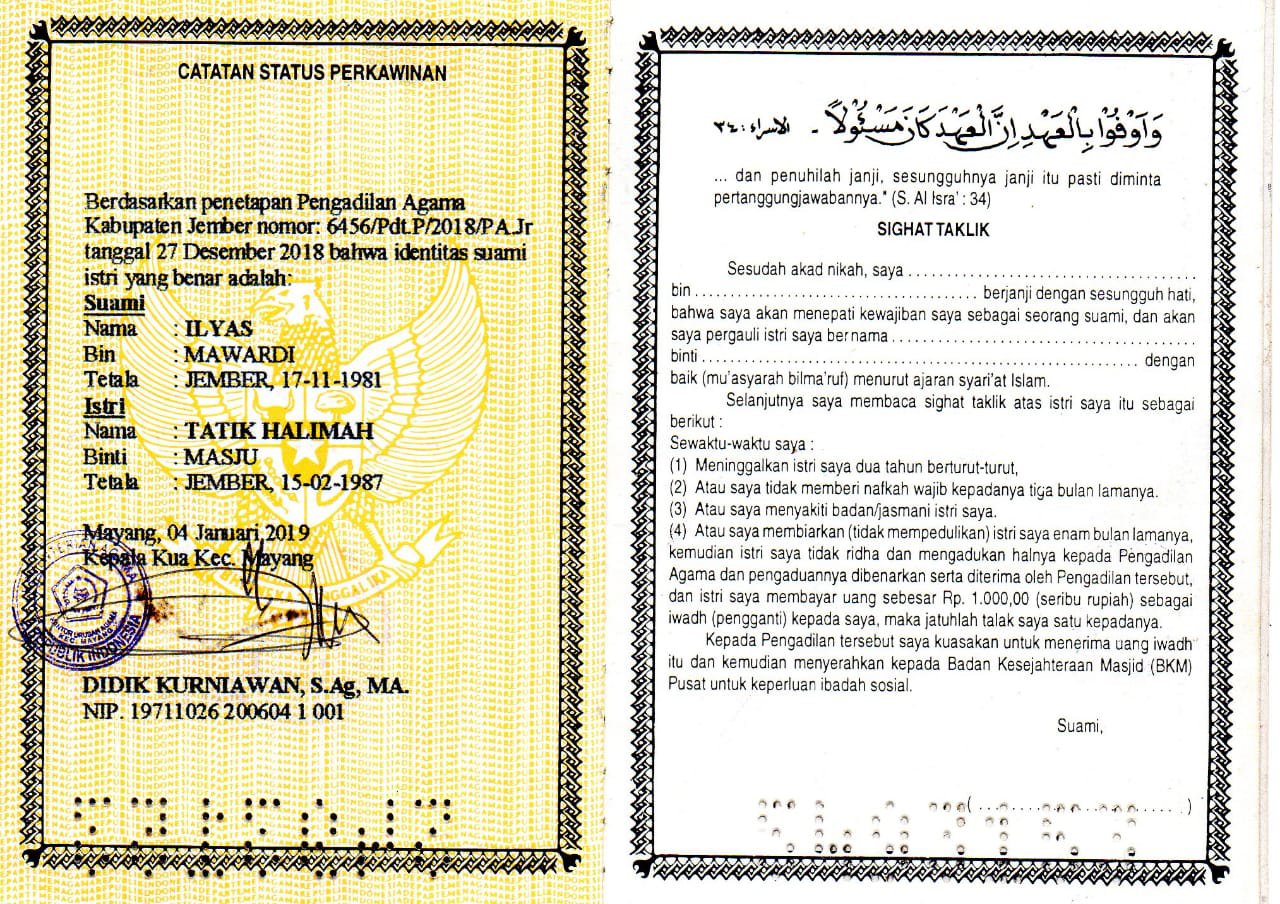 CATATAN STATUS PERKAWINAN
Berdasarkan penetapan Pengadilan Agama
Kabupaten Jember nomor: 6456/Pdt.P/2018/PA.Jr
tanggal 27 Desember 2018 bahwa identitas suami
istri yang benar adalah:
Suami
Nama : ILYAS
Bin : MAWARDI
Tetala : JEMBER, 17-11-1981
Istri
Nama : TATIK HALIMAH
Binti : MASJU
Tetala : JEMBER, 15-02-1987
Mayang, 04 Januari 2019
Kepala Kua Kec. Mayang
KANTOR URUSAN AGAMA
KEC. MAYANG
REPUBLIK INDONESIA
DIDIK KURNIAWAN, S.Ag, MA.
NIP. 19711026 200604 1 001
وَاَوْفُوْا بِالْعَهْدِ اِنَّ الْعَهْدَ كَانَ مَسْئُوْلًا - الاسراء : ٣٤
... dan penuhilah janji, sesungguhnya janji itu pasti diminta
pertanggungjawabannya." (S. Al Isra' : 34)
SIGHAT TAKLIK
Sesudah akad nikah, saya . . . . . . . . . . . . . . . . . . . . . . . . . . . . . . . . . . . . . . . .
bin . . . . . . . . . . . . . . . . . . . . . . . . . . . . . . . . . . . . . . . . berjanji dengan sesungguh hati,
bahwa saya akan menepati kewajiban saya sebagai seorang suami, dan akan
saya pergauli istri saya bernama . . . . . . . . . . . . . . . . . . . . . . . . . . . . . . . . . . . . . . . . . .
binti . . . . . . . . . . . . . . . . . . . . . . . . . . . . . . . . . . . . . . . . . . . . . . . . . . . . . . . . . . . . dengan
baik (mu'asyarah bilma'ruf) menurut ajaran syari'at Islam.
Selanjutnya saya membaca sighat taklik atas istri saya itu sebagai
berikut :
Sewaktu-waktu saya :
(1) Meninggalkan istri saya dua tahun berturut-turut,
(2) Atau saya tidak memberi nafkah wajib kepadanya tiga bulan lamanya.
(3) Atau saya menyakiti badan/jasmani istri saya.
(4) Atau saya membiarkan (tidak mempedulikan) istri saya enam bulan lamanya,
kemudian istri saya tidak ridha dan mengadukan halnya kepada Pengadilan
Agama dan pengaduannya dibenarkan serta diterima oleh Pengadilan tersebut,
dan istri saya membayar uang sebesar Rp. 1.000,00 (seribu rupiah) sebagai
iwadh (pengganti) kepada saya, maka jatuhlah talak saya satu kepadanya.
Kepada Pengadilan tersebut saya kuasakan untuk menerima uang iwadh
itu dan kemudian menyerahkan kepada Badan Kesejahteraan Masjid (BKM)
Pusat untuk keperluan ibadah sosial.
Suami,
(. . . . . . . . . . . . . . . . . . . . . . . . . . . . . .)